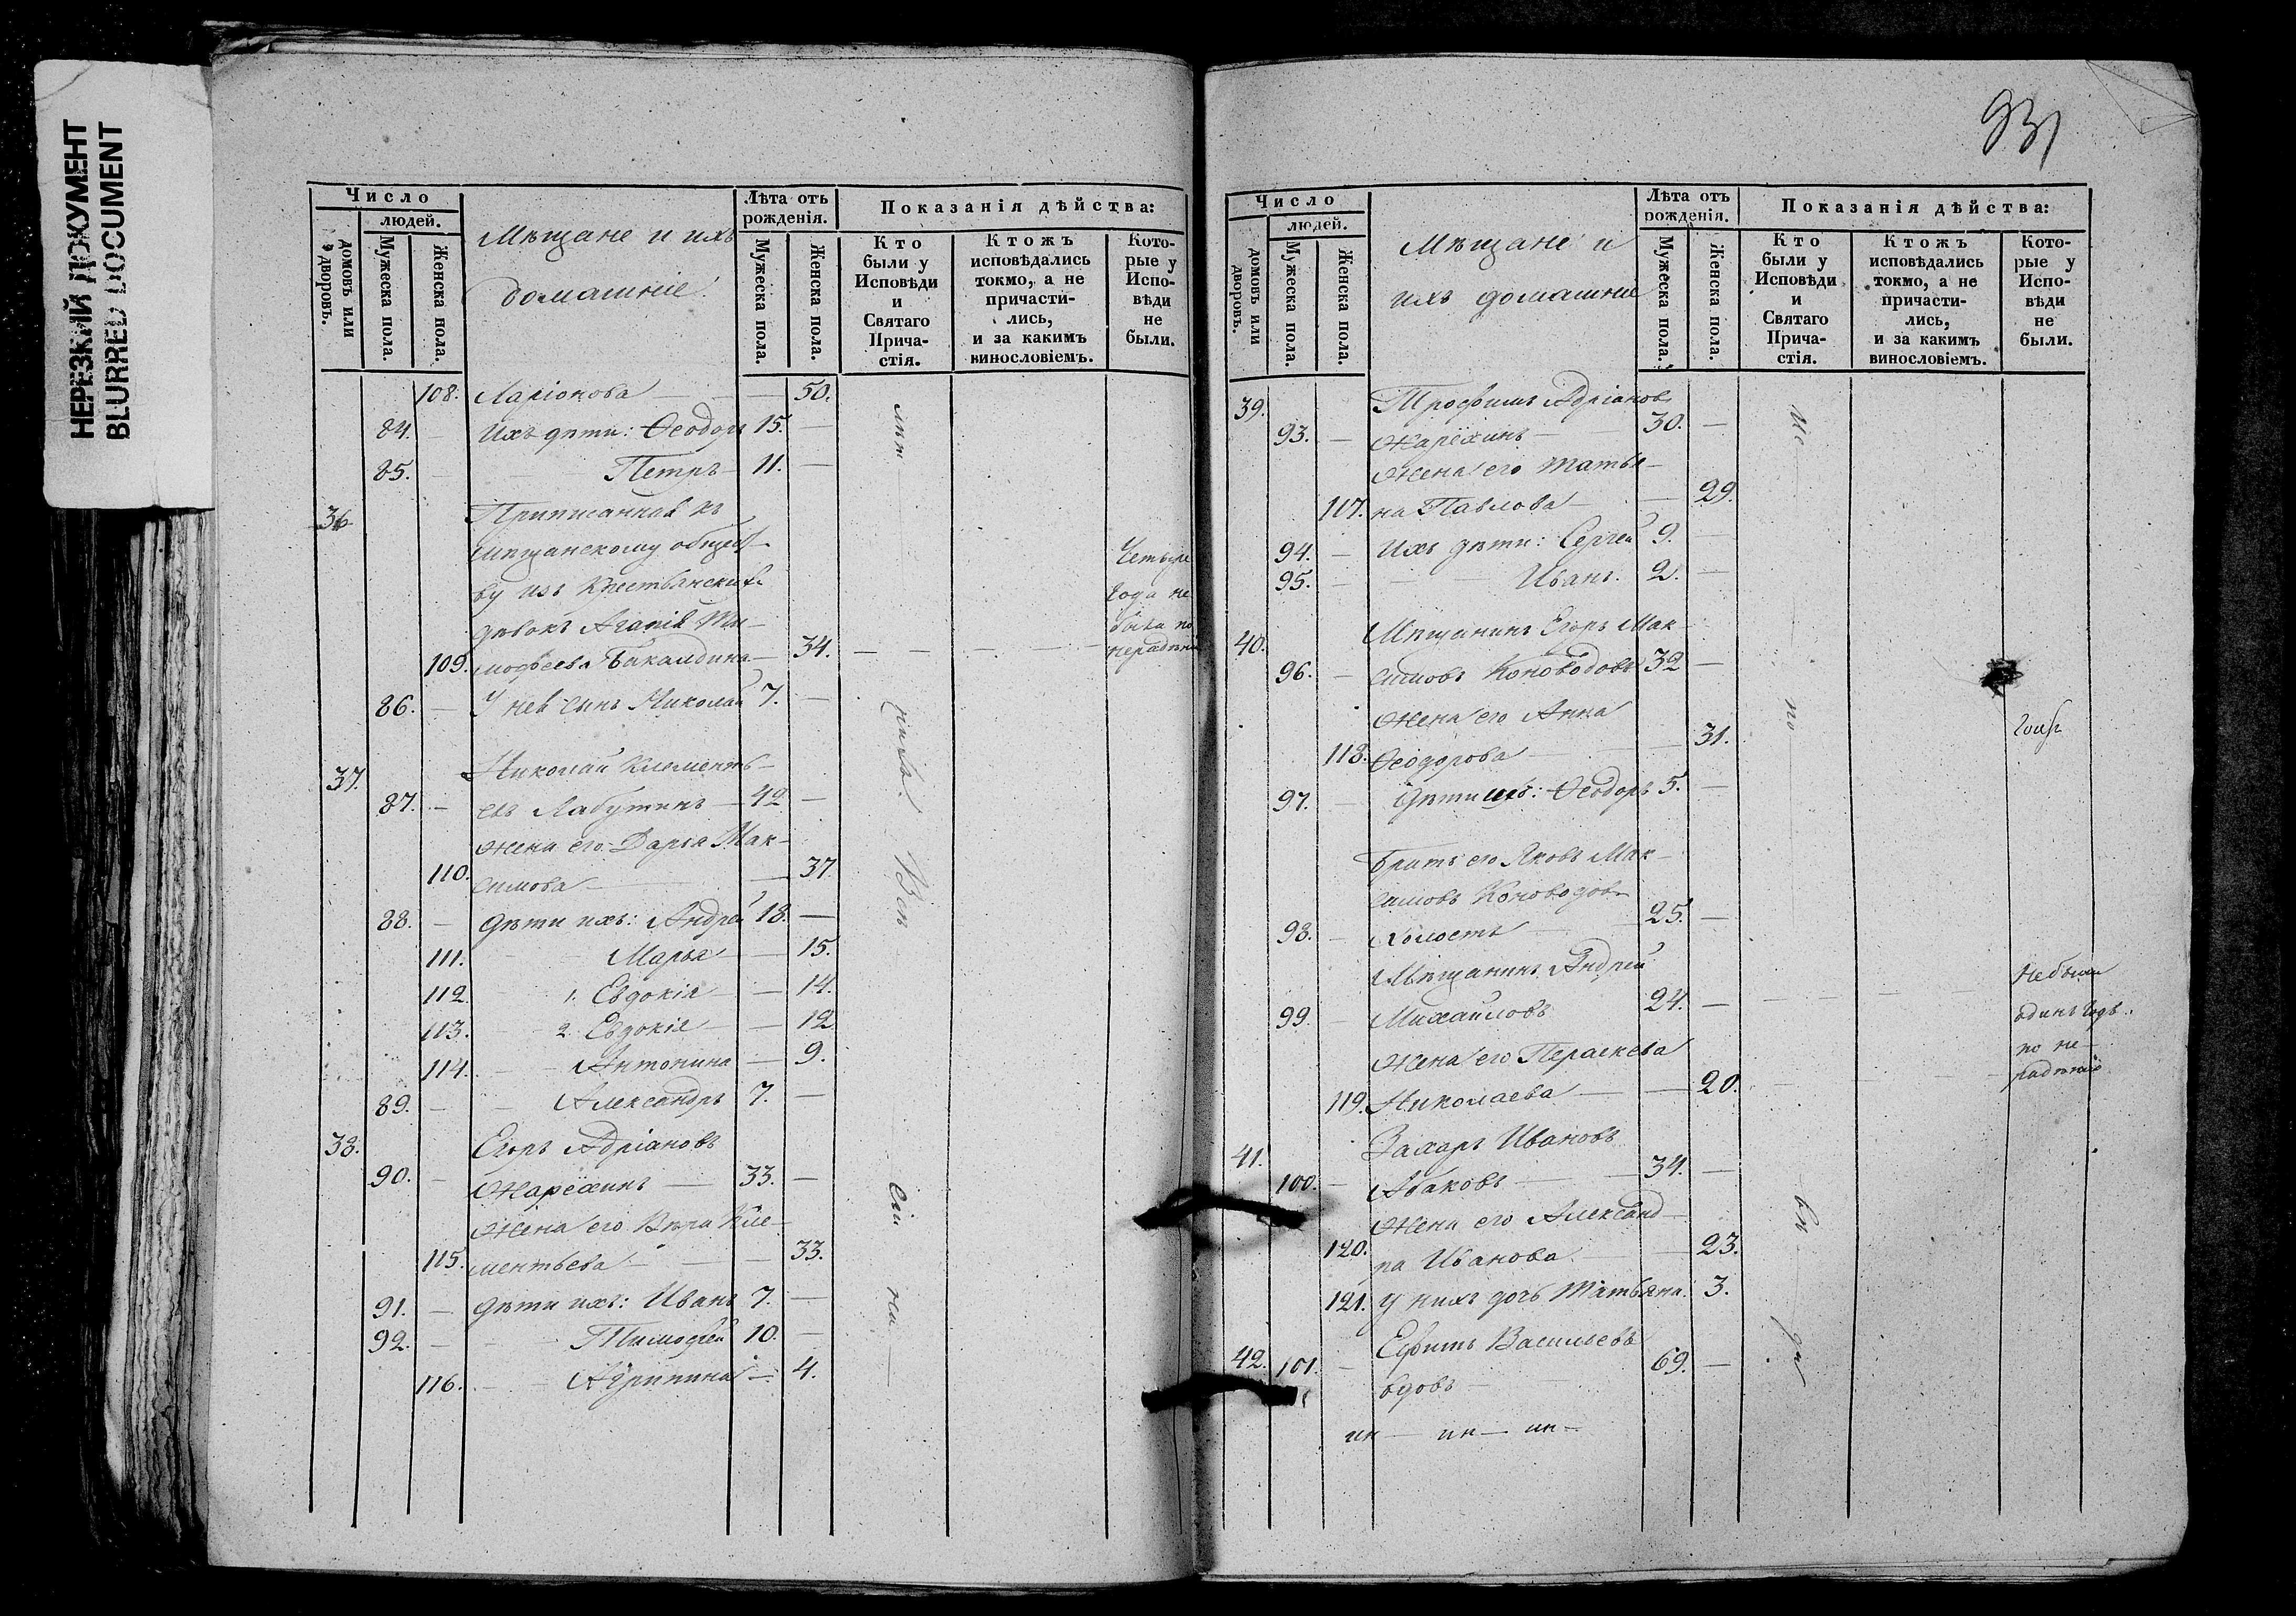 НЕРЕЗКИЙ ДОКУМЕНТ
BLURRED DOCUMENT
Число
людей.
домовъ или дворовъ.
Мужеска пола.
Женска пола.
Мѣщане и ихъ
домашніе.
Лѣта отъ
рожденія.
Мужеска пола.
Женска пола.
Показанія дѣйства:
Кто
были у
Исповѣди
и
Святаго
Прича-
стія.
Ктожъ
исповѣдались
токмо, а не
причасти-
лись,
и за какимъ
винословіемъ.
Кото-
рые у
Испо-
вѣди
не
были.
108. Ларіонова — 50.
84. Ихъ дѣти: Ѳеодоръ 15. —
85. — Петръ — 11. —
36. Приписанная къ
мѣщанскому общест-
ву изъ крестьянскихъ
дѣвокъ Агапія Ти-
109. моѳеева Бакалдина — 34. — — — —
Четыре
года не
была по
нерадѣнію
86. — У нея сынъ Николай 7. —
37. Николай Клементь-
87. — евъ Лабутинъ — 42 —
жена его Дарья Мак-
110. симова — — 37.
88. — дѣти ихъ: Андрей 18. —
111. — Марья — 15.
112. — 1. Евдокія — 14.
113. — 2. Евдокія — 12
114. — Антонина — 9.
89. — — Александръ 7. —
38. Егоръ Адріановъ
90. — Жарёхинъ — 33. —
жена его Вѣра Кле-
115. ментьева — — 33.
91. — дѣти ихъ: Иванъ 7. —
92. — — Тимофей 10. —
116. — — Агрипина — 4.
Всѣ
сіи
на
931
Число
людей.
домовъ или дворовъ.
Мужеска пола.
Женска пола.
Мѣщане и
ихъ домашніе
Лѣта отъ
рожденія.
Мужеска пола.
Женска пола.
Показанія дѣйства:
Кто
были у
Исповѣди
и
Святаго
Прича-
стія.
Ктожъ
исповѣдались
токмо, а не
причасти-
лись,
и за какимъ
винословіемъ.
Кото-
рые у
Испо-
вѣди
не
были.
39. Трофимъ Адріановъ
93. — Жарёхинъ — 30. —
жена его Татья-
117. на Павлова — — 29.
94. — Ихъ дѣти: Сергей 9. —
95. — Иванъ. 2. —
40. Мѣщанинъ Егоръ Мак-
96. — симовъ Коноводовъ 32 —
жена его Анна
118. Ѳеодорова — — 31.
97. — Дѣти ихъ: Ѳеодоръ 5. —
Братъ его Яковъ Мак-
симовъ Коноводовъ
98. — холостъ 25. —
Мѣщанинъ Андрей
99. — Михайловъ 24. — — — —
жена его Параскева
119. Николаева — — 20.
Не были
одинъ годъ
по не-
радѣнію
41. Захаръ Ивановъ
100. — Абаковъ — 34. —
жена его Александ-
120. ра Иванова — 23.
121. у нихъ дочь Татьяна. 3.
42. Ефимъ Васильевъ
101. — вдовъ — 69. —
по